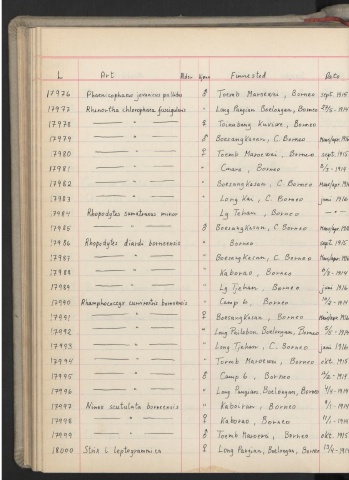 L Art Alder Kjønn Funnsted Dato
17976 Phoenicophaus javanicus pallidus ♂ Toemb Maroewai, Borneo sept. 1915
17977 Rhinortha chlorophaea fuscigularis " Long Pangian Boelongan, Borneo
17978 — " — ♀ Borneo
17979 — " — ♂ Boesang Kasan, C. Borneo
17980 — " — ♀ Toemb Maroewai, Borneo sept. 1915
17981 — " — " Borneo
17982 — " — " Boesang Kasan, C. Borneo
17983 — " — " Long Kai, C. Borneo juni 1916
17984 Rhopodytes sumatranus minor Lg Tehan, Borneo — " —
17985 — " — ♂ Boesang Kasan, C. Borneo
17986 Rhopodytes diardi borneensis " Borneo sept. 1915
17987 — " — " Boesang Kasan, C. Borneo
17988 — " — " Kaborao, Borneo
17989 — " — " Lg Tjehan, Borneo juni 1916
17990 Rhamphococcyx curvirostris borneensis " Camp 6, Borneo
17991 — " — ♀ Boesang Kasan, Borneo
17992 — " — " Long Boelongan, Borneo
17993 — " — " Long Tjehan, C. Borneo juni 1916
17994 — " — " Toemb Maroewai, Borneo okt. 1915
17995 — " — ♂ Camp 6, Borneo
17996 — " — " Long Pangian, Boelongan, Borneo
17997 Ninox scutulata borneensis " Kaborao, Borneo
17998 — " — ♀ Kaborao, Borneo
17999 — " — ♂ Toemb Maroewai, Borneo okt. 1915
18000 Strix l. leptogrammica ♀ Long Pangian, Boelongan, Borneo